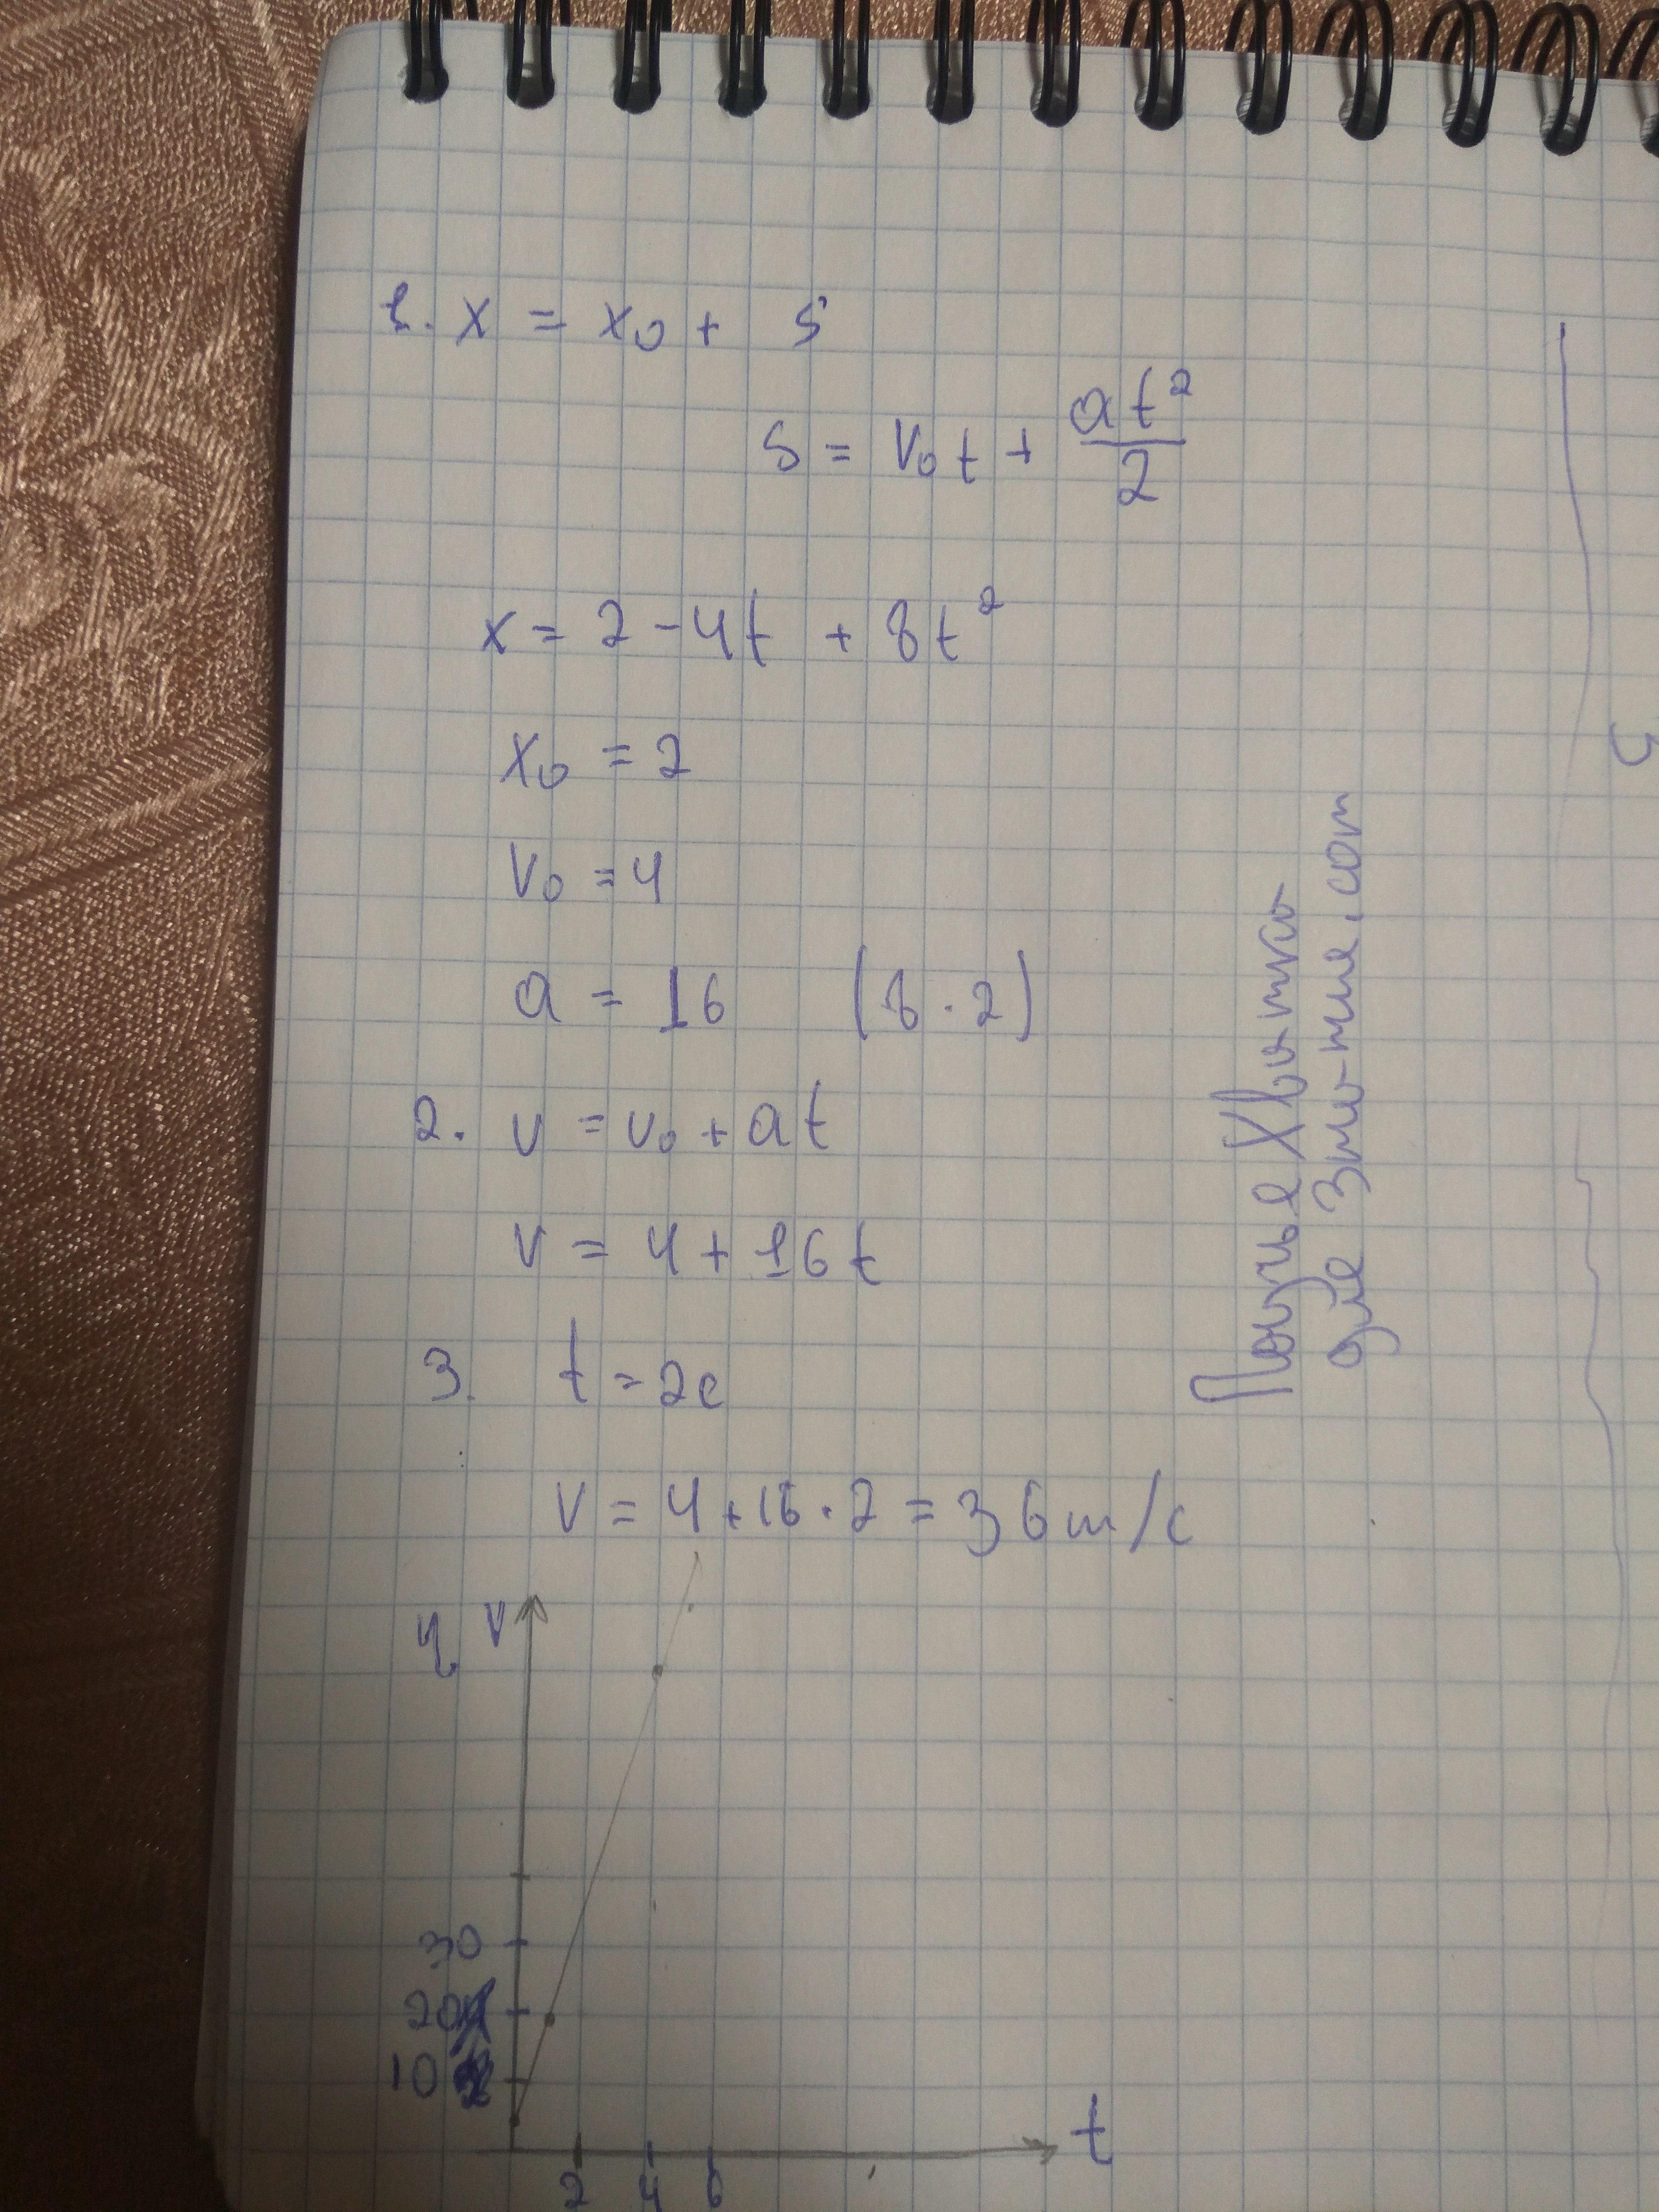 1. x = x₀ + S
S = V₀t + at²/2
x = 2 - 4t + 8t²
x₀ = 2
V₀ = 4
a = 16 (8 · 2)
2. v = v₀ + at
v = 4 + 16t
3. t = 2c
V = 4 + 16 · 2 = 36 м/с
4. V
30
20
10
2 4 6
t
для Зно-тие.com